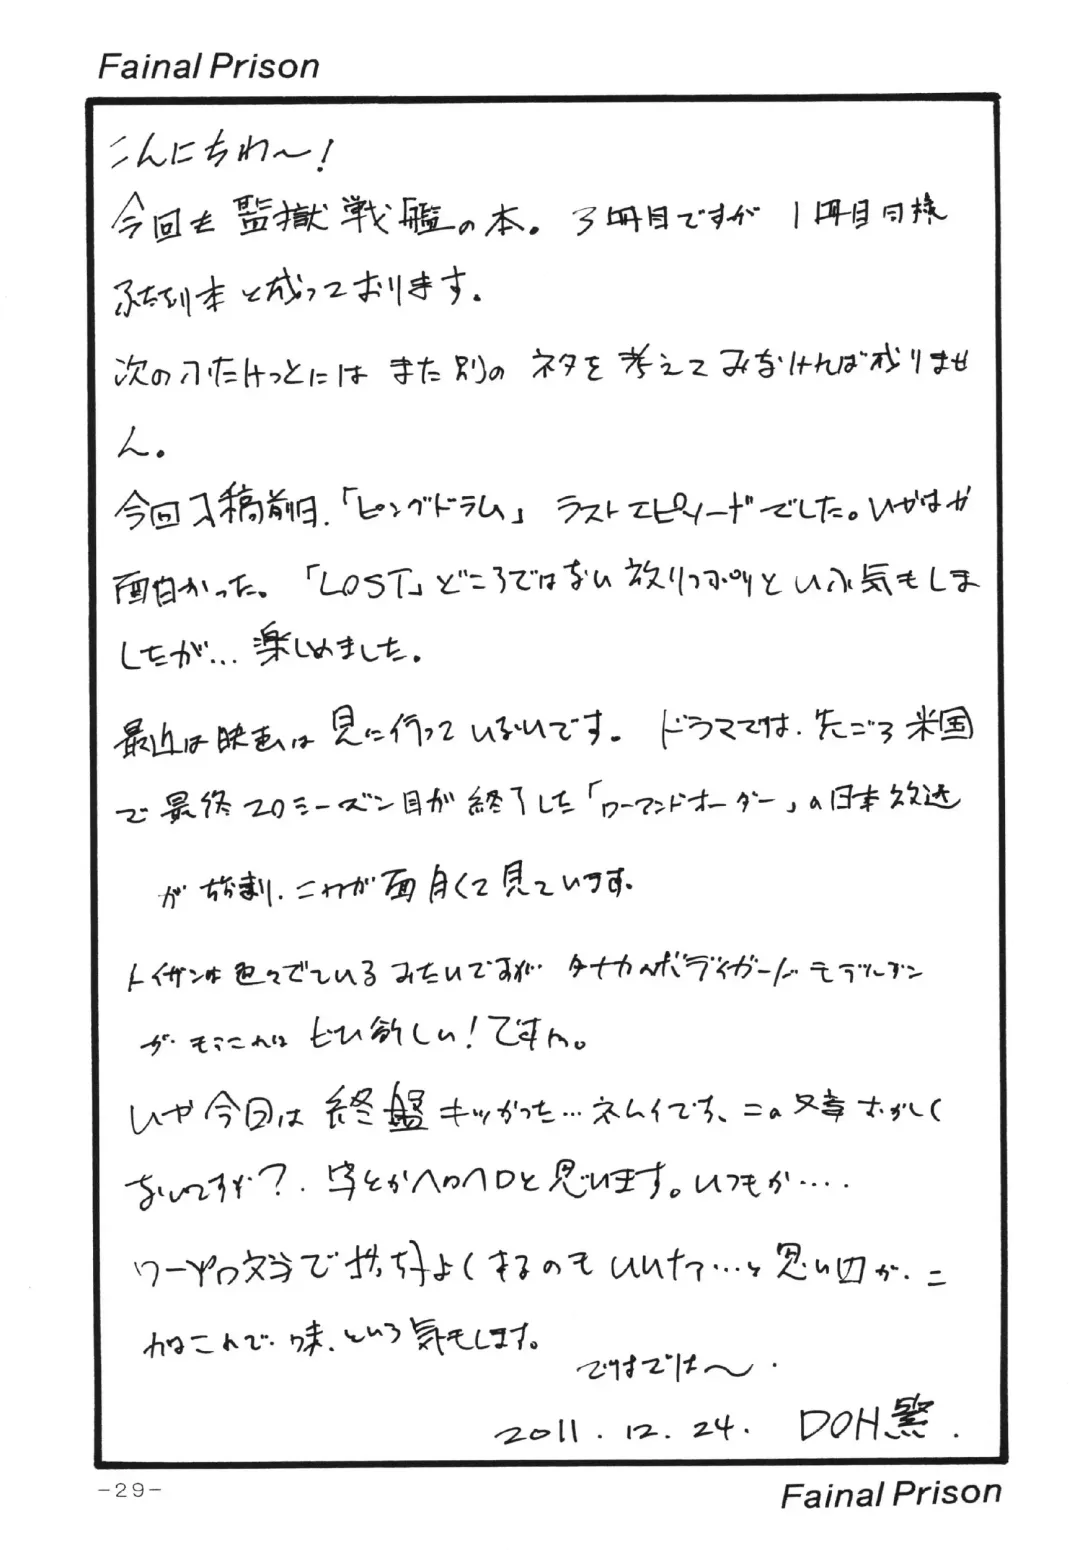 Fainal Prison
こんにちわ〜！
今回も監獄戦艦の本。3冊目ですが1冊目同様
ふた列本と成っております。
次のふたけっとにはまた別のネタを考えてみなければ成りませ
ん。
今回入稿前日、「ピングドラム」ラストエピソードでした。いやはや
面白かった。「LOST」どころではない放りっぷりという気もしま
したが…楽しめました。
最近は映画は見に行っていないです。ドラマでは、先ごろ米国
で最終20シーズン目が終了した「ローアンドオーダー」の日本放送
が始まり、これが面白くて見ています。
トイガンは色々でているみたいですが タナカのボディガードモデルガン
が、もうこれはぜひ欲しい！ですね。
いや今回は終盤キツかった…ネムイです、この文章おかしく
ないですか？、字とかヘロヘロと思います。いつもか‥‥
ワープロ文字で 良くするのもいいなァ…と思いつつ、こ
れはこれで味、という気もします。
ではでは〜．
2011．12．24． DOH繁．
-29-
Fainal Prison